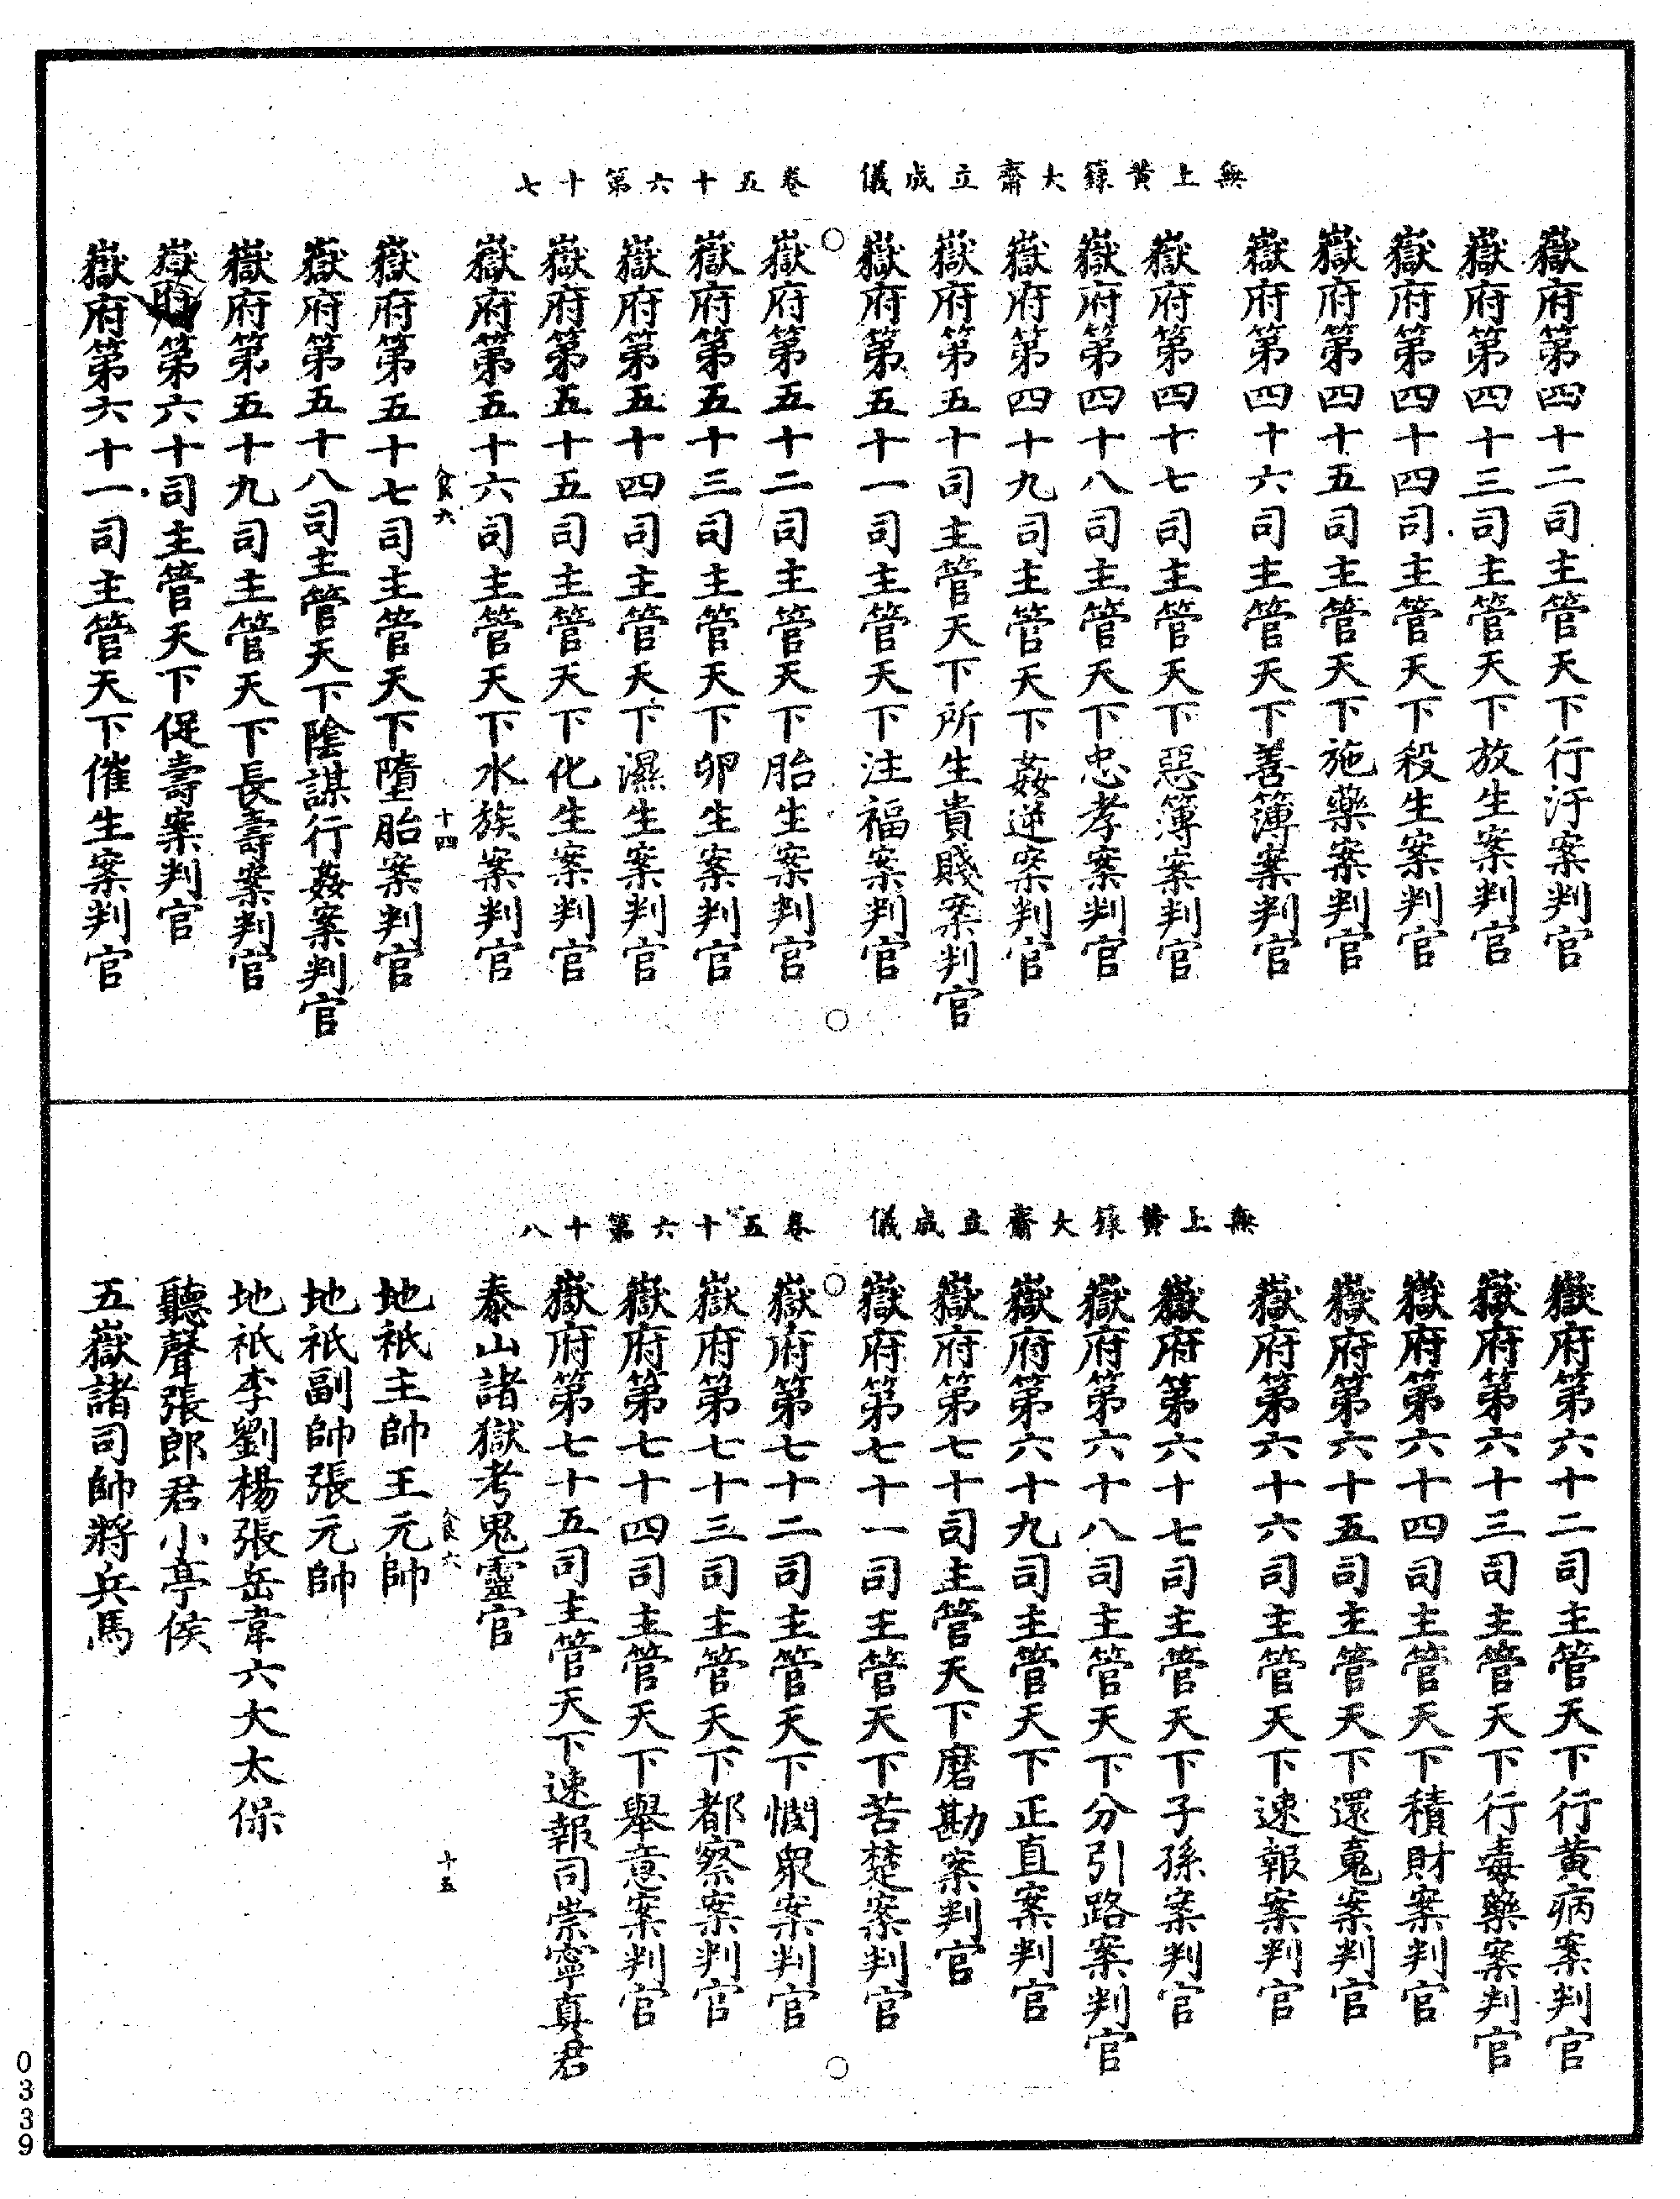 無上黃籙大齋立成儀　卷五十六第十七
嶽府第四十二司主管天下行汙案判官
嶽府第四十三司主管天下放生案判官
嶽府第四十四司主管天下殺生案判官
嶽府第四十五司主管天下施藥案判官
嶽府第四十六司主管天下善簿案判官
嶽府第四十七司主管天下惡簿案判官
嶽府第四十八司主管天下忠孝案判官
嶽府第四十九司主管天下姦逆案判官
嶽府第五十司主管天下所生貴賤案判官
嶽府第五十一司主管天下注福案判官
嶽府第五十二司主管天下胎生案判官
嶽府第五十三司主管天下卵生案判官
嶽府第五十四司主管天下濕生案判官
嶽府第五十五司主管天下化生案判官
嶽府第五十六司主管天下水族案判官
食六　十四
嶽府第五十七司主管天下墮胎案判官
嶽府第五十八司主管天下陰謀行姦案判官
嶽府第五十九司主管天下長壽案判官
嶽府第六十司主管天下促壽案判官
嶽府第六十一司主管天下催生案判官
無上黃籙大齋立成儀　卷五十六第十八
嶽府第六十二司主管天下行黃病案判官
嶽府第六十三司主管天下行毒藥案判官
嶽府第六十四司主管天下積財案判官
嶽府第六十五司主管天下還魂案判官
嶽府第六十六司主管天下速報案判官
嶽府第六十七司主管天下子孫案判官
嶽府第六十八司主管天下分引路案判官
嶽府第六十九司主管天下正直案判官
嶽府第七十司主管天下磨勘案判官
嶽府第七十一司主管天下苦楚案判官
嶽府第七十二司主管天下憫眾案判官
嶽府第七十三司主管天下都察案判官
嶽府第七十四司主管天下舉意案判官
嶽府第七十五司主管天下速報司崇寧真君
泰山諸獄考鬼靈官
食六　十五
地祇主帥王元帥
地祇副帥張元帥
地祇李劉楊張岳韋六大太保
聽聲張郎君小亭侯
五嶽諸司帥將兵馬
0339